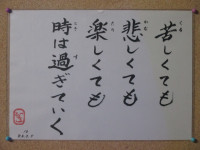 苦しくても
悲しくても
楽しくても
時は過ぎていく